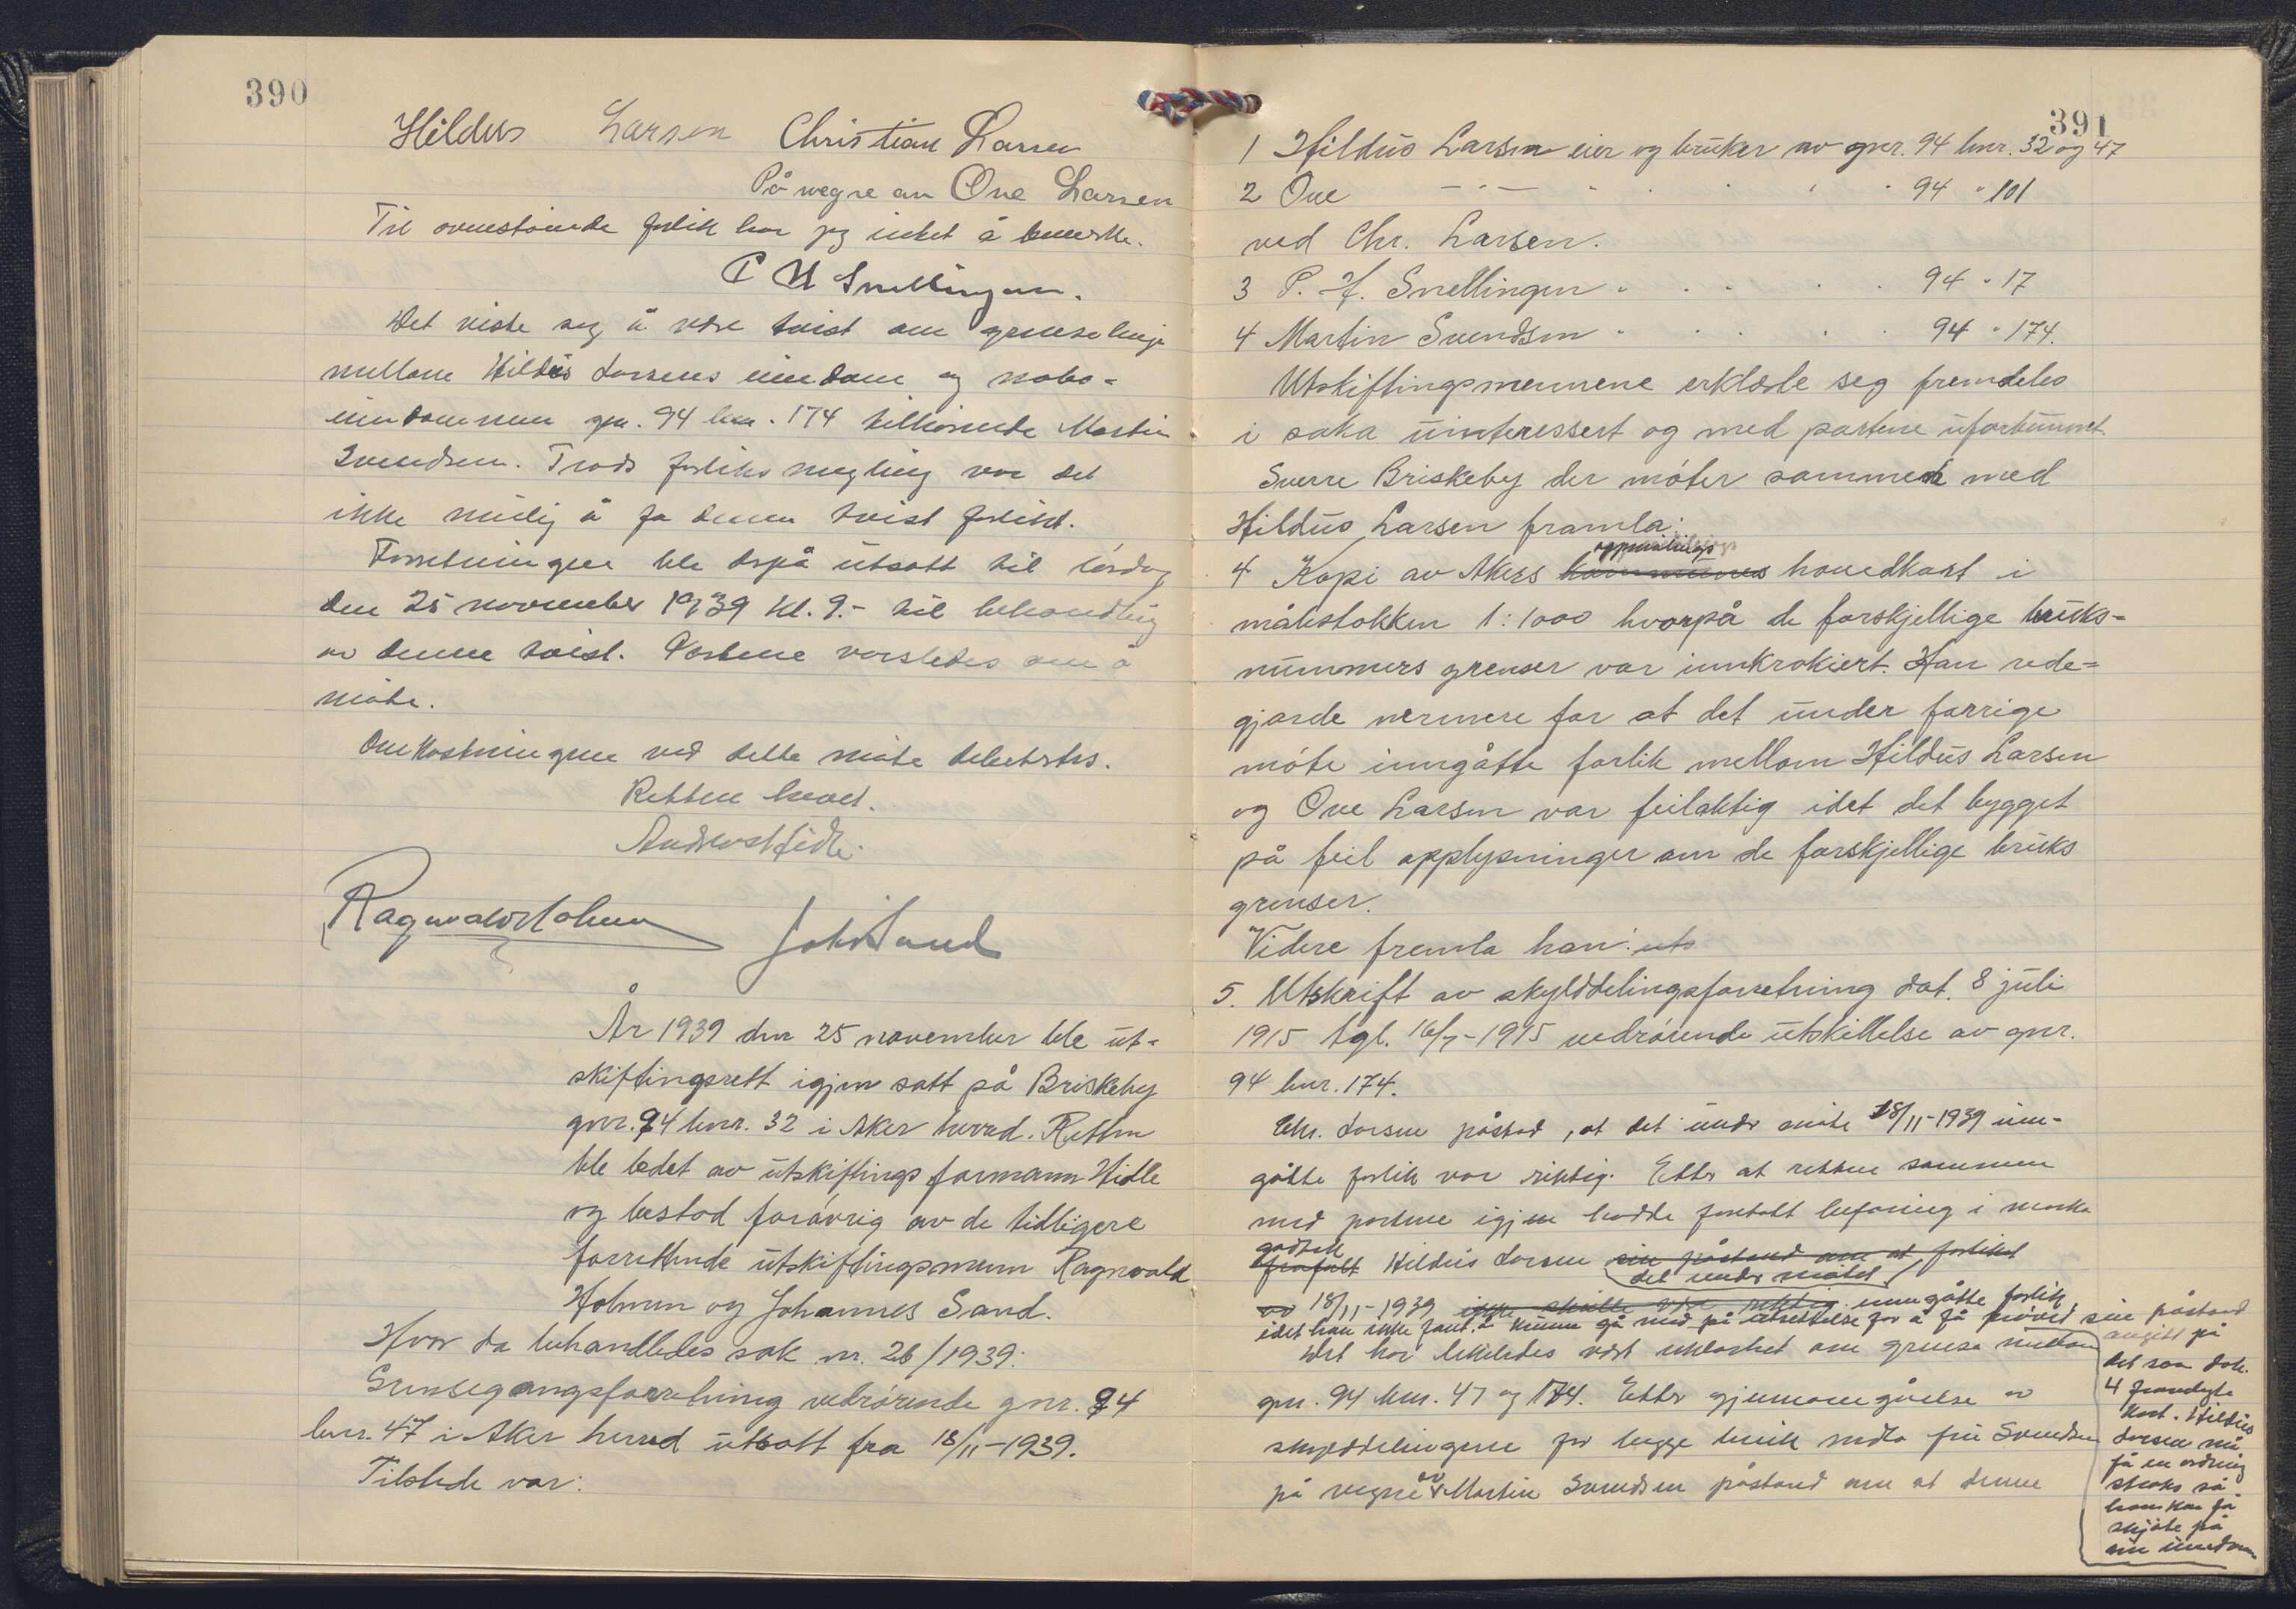 390
Hildus Larsen Christian Larsen
På vegne av Ove Larsen
Til ovenstående forlik har jeg intet å bemerke.
P H Snellingen.
Det viste seg å være tvist om grenselinje
mellom Hildus Larsens eiendom og nabo-
eiendommen gnr. 94 bnr. 174 tilhörende Martin
Svendsen. Trods forliksmegling var det
ikke mulig å få denne tvist forlikt.
Forretningen ble derpå utsatt til lördag
den 25 november 1939 kl. 9.- til behandling
av denne tvist. Partene varsledes om å
möte.
Omkostningene ved dette möte
Retten hevet.
Ragnvald Holmen Joh. Sand
År 1939 den 25 november ble ut-
skiftingsrett igjen satt på Briskeby
gnr. 94 bnr. 32 i Aker herred. Retten
ble ledet av utskiftingsformann Hidle
og bestod forövrig av de tidligere
forrettende utskiftingsmenn Ragnvald
Holmen og Johannes Sand.
Hvor da behandledes sak nr. 26/1939:
Grensegangsforretning vedrörende gnr. 94
bnr. 47 i Aker herred utsatt fra 18/11-1939.
Tilstede var:
391
1 Hildus Larsen eier og bruker av gnr. 94 bnr. 32 og 47
2 Ove — " — " . . . . 94 " 101
ved Chr. Larsen.
3 P. H. Snellingen " . . . . 94 " 17
4 Martin Svendsen " . . . . 94 " 174.
Utskiftingsmennene erklærte seg fremdeles
i saka uinteressert og med partene ufortunnet.
Sverre Briskeby der möter sammen med
Hildus Larsen framla:
oppmålings
4 Kopi av Akers kommunes hovedkart i
målestokken 1:1000 hvorpå de forskjellige bruks-
nummers grenser var innkrokiert. Han rede-
gjorde nermere for at det under forrige
möte inngåtte forlik mellom Hildus Larsen
og Ove Larsen var feilaktig idet det bygget
på feil opplysninger om de forskjellige bruks
grenser.
Videre fremla han: uts
5. Utskrift av skylddelingsforretning dat. 8 juli
1915 tgl. 16/7-1915 vedrörende utskillelse av gnr.
94 bnr. 174.
Chr. Larsen påstod, at det under möte 18/11-1939 inn-
gåtte forlik var riktig. Etter at retten sammen
med partene igjen hadde foretatt befaring i marka
godtok
frafalt Hildus Larsen sin påstand om at forliket
det under mötet
av 18/11-1939 ikke skulle være riktig inngåtte forlik
idet han ikke fant å kunne gå med på utsettelse for å få prövet sin påstand
Det har likeledes vært uklarhet om grense mellom
gnr. 94 bnr. 47 og 174. Etter gjennomgåelse av
skylddelingene for begge bruk nedla fru Svendsen
på vegne av Martin Svendsen påstand om at denne
angitt på
det som dok.
4 framlagte
kart. Hildus
Larsen må
få en ordning
straks så
han kan få
skjöte på
sin eiendom